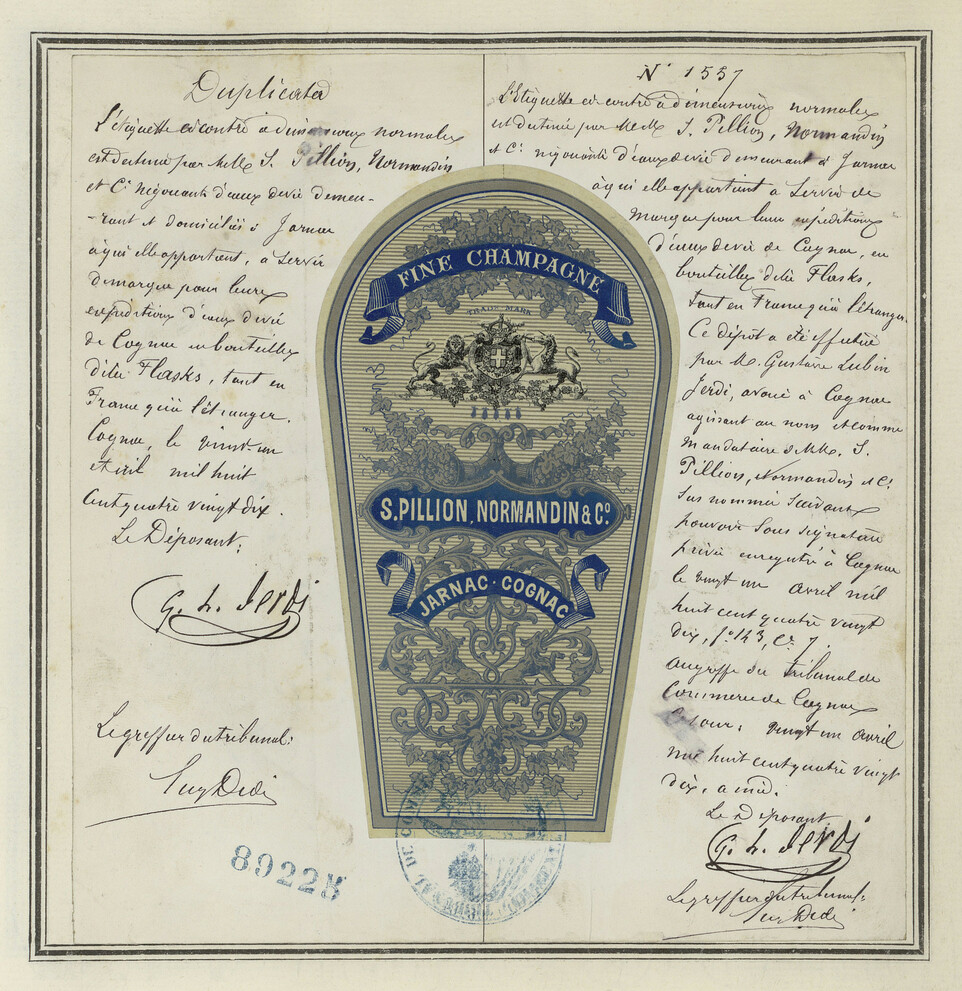 Duplicata
L'étiquette ci contre a dimensions normales
est destinée par MM. S. Pillion, Normandin
et Cie négociants d'eaux de vie demeu-
-rant et domiciliés à Jarnac
à qui elle appartient, à servir
de marque pour leurs
expéditions d'eaux de vie
de Cognac en bouteilles
dites Flasks, tant en
France qu'à l'étranger.
Cognac, le vingt-un
Avril mil huit
cent quatre vingt dix.
Le Déposant:
G. L. Jerdi
Le greffier du tribunal:
89225
FINE CHAMPAGNE
TRADE MARK
S. PILLION, NORMANDIN & Co.
JARNAC-COGNAC
No 1557
L'Etiquette ci-contre à dimensions normales
est destinée par MM. S. Pillion, Normandin
et Cie négociants d'eaux de vie demeurant à Jarnac
à qui elle appartient à servir de
marque pour leurs expéditions
d'eaux de vie de Cognac, en
bouteilles dites Flasks,
tant en France qu'à l'étranger.
Ce dépôt a été effectué
par M. Gustave Lubin
Jerdi, avoué à Cognac
agissant au nom et comme
mandataire de MM. S.
Pillion, Normandin et Cie
sus nommés suivant
pouvoir sous signature
privée enregistré à Cognac
le vingt un avril mil
huit cent quatre vingt
dix, fo 143, Ce 7
au greffe du tribunal de
Commerce de Cognac
ce jour: vingt un avril
mil huit cent quatre vingt
dix, à midi.
Le Déposant
G. L. Jerdi
Le greffier du tribunal: